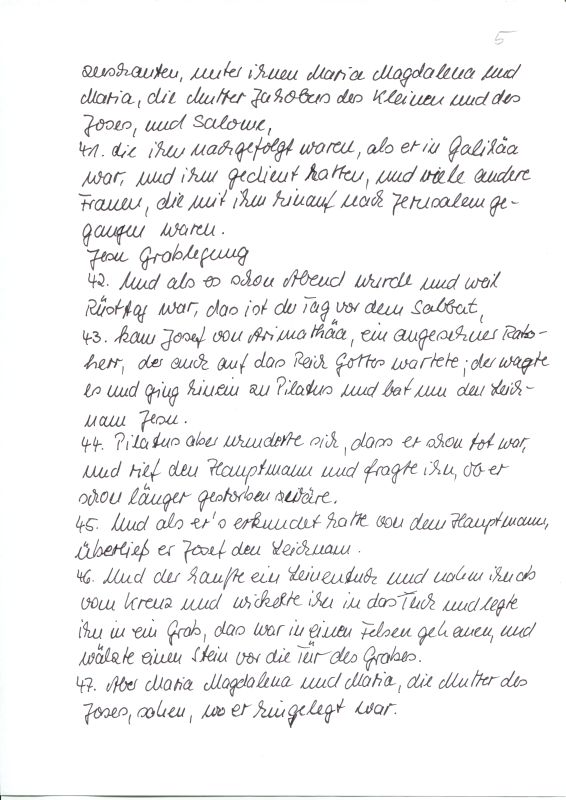 5
zuschauten, unter ihnen Maria Magdalena und
Maria, die Mutter Jakobus des Kleinen und des
Joses, und Salome,
41. die ihm nachgefolgt waren, als er in Galiläa
war, und ihm gedient hatten, und viele andere
Frauen, die mit ihm hinauf nach Jerusalem ge-
gangen waren.
Jesu Grablegung
42. Und als es schon Abend wurde und weil
Rüsttag war, das ist der Tag vor dem Sabbat,
43. kam Josef von Arimathäa, ein angesehner Rats-
herr, der auch auf das Reich Gottes wartete; der wagte
es und ging hinein zu Pilatus und bat um den Leich-
nam Jesu.
44. Pilatus aber wunderte sich, dass er schon tot war,
und rief den Hauptmann und fragte ihn, ob er
schon länger gestorben wäre.
45. Und als er's erkundet hatte von dem Hauptmann,
überließ er Josef den Leichnam.
46. Und der kaufte ein Leinentuch und nahm ihn ab
vom Kreuz und wickelte ihn in das Tuch und legte
ihn in ein Grab, das war in einen Felsen gehauen, und
wälzte einen Stein vor die Tür des Grabes.
47. Aber Maria Magdalena und Maria, die Mutter des
Joses, sahen, wo er hingelegt war.